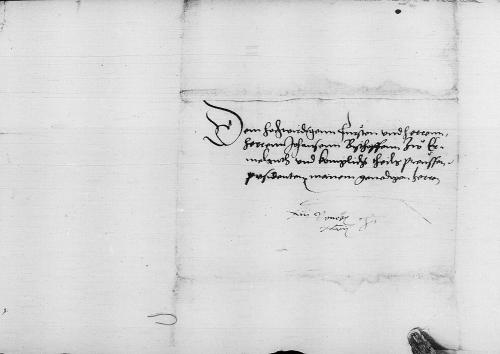 Dem hochwirdigenn fursten vnd herrenn,
herrenn Johannsenn Bischoffenn zw Er-
melandt vnd koniglichs theils preussen
presidenten meinem genedigen herrn